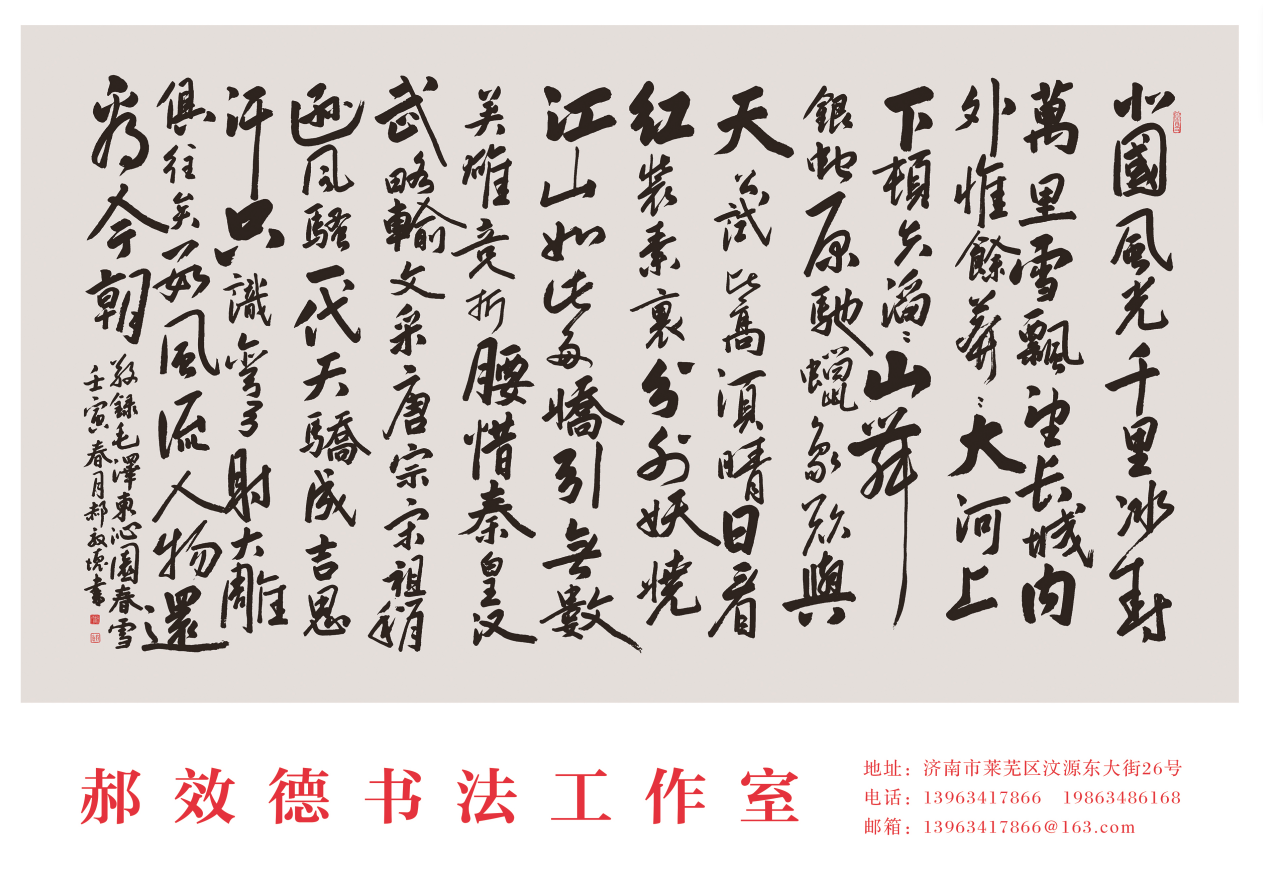 北國風光千里冰封
萬里雪飄望长城内
外惟餘莽〻大河上
下頓失滔〻山舞
銀蛇原馳蠟象欲與
天公試比高須晴日看
红装素裹分外妖嬈
江山如此多嬌引無數
英雄竞折腰惜秦皇汉
武略輸文采唐宗宋祖稍
逊风騷一代天驕成吉思
汗只識彎弓射大雕
俱往矣数風流人物還
看今朝
敬錄毛澤東沁園春雪
壬寅春月郝效德書
郝效德书法工作室
地址：济南市莱芜区汶源东大街26号
电话：13963417866 19863486168
邮箱：13963417866@163.com